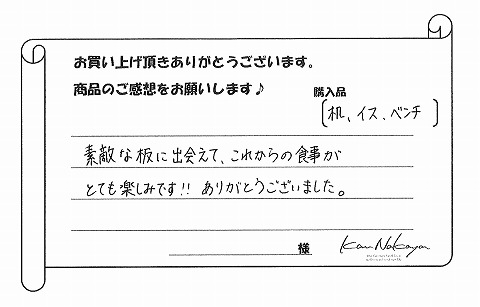 お買い上げ頂きありがとうございます。
商品のご感想をお願いします♪
購入品
[机、イス、ベンチ]
素敵な板に出会えて、これからの食事が
とても楽しみです!! ありがとうございました。
様